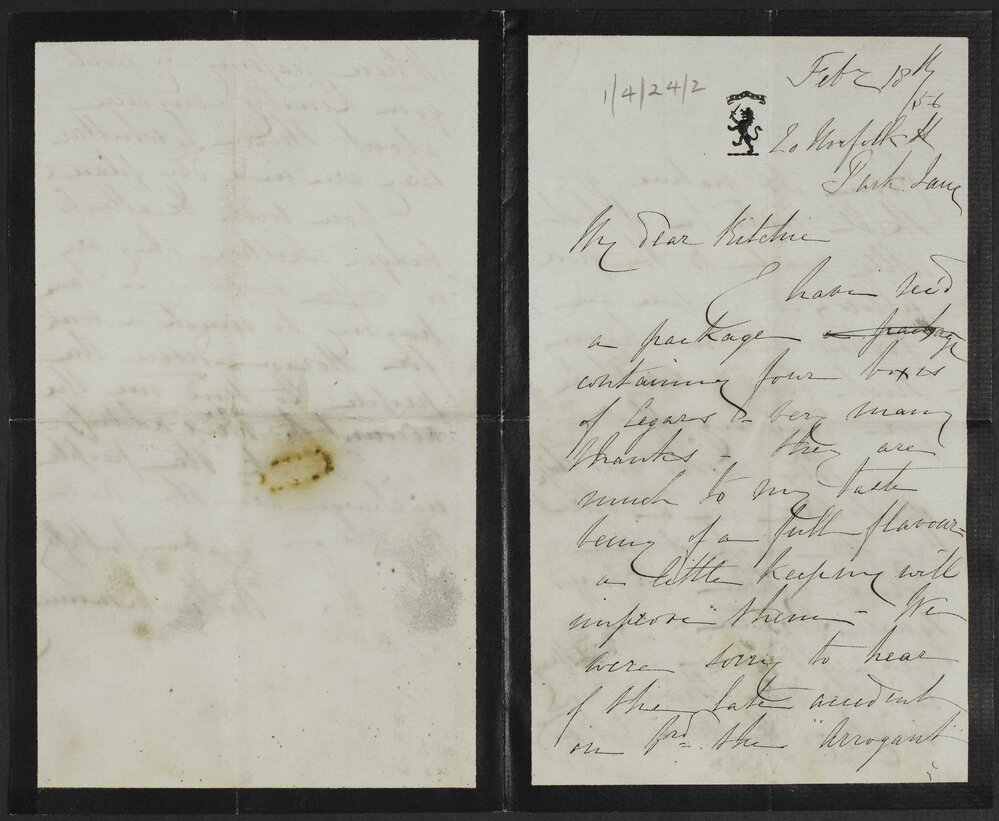 1/4/24/2
Feby 18th
/56
20 Norfolk St
Park Lane
My dear Ritchie
I have rec'd
a package a package
containing four boxes
of Cegars - very many
thanks - they are
much to my taste
being of a full flavour -
a little keeping will
improve them - We
were sorry to hear
of the late accident
on brd the "Arrogant"